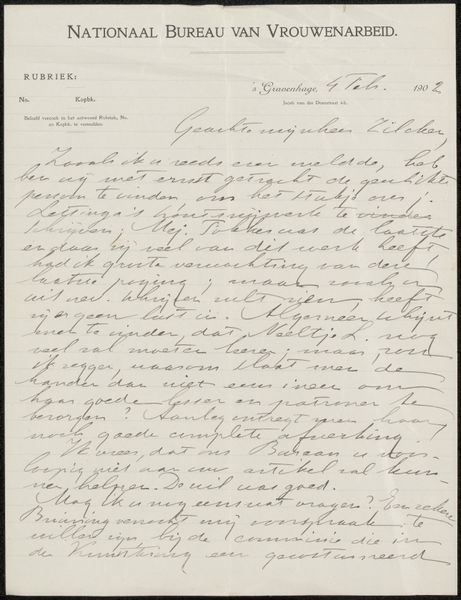 NATIONAAL BUREAU VAN VROUWENARBEID.
RUBRIEK:
's Gravenhage, 4 Feb. 1902
No. Kopbk.
Jacob van der Doesstraat
Beleefd verzoek in het antwoord Rubriek, No.
en Kopbk. te vermelden.
Geachte mijnheer Zilcken,
Zooals ik u reeds eer meldde, heb
ben wij met ernst getracht de geschikte
persoon te vinden om het stukje over
te vinden
schrijven. Mej. was de laatste
en daar zij veel van dit werk heeft
had ik groote verwachting van deze
laatste poging; maar zooals u
uit zien, heeft
zij geen lust in. Algemeen schijnt
men te vinden, dat Neeltje L. nog
veel zal moeten leeren, maar, zou
ik zeggen, waarom slaat men de
handen dan niet eens ineen om
haar goede lessen en patronen te
bezorgen? men haar
noch goede complete afwerking.
Ik vrees, dat ons Bureau u voor-
loopig niet aan uw artikel zal kun-
nen helpen. De wil was goed.
Mag ik u nog eens wat vragen? Een zekere
Bruining verzocht mij voorspraak te
willen zijn bij de commissie die in
den Kunstkring een